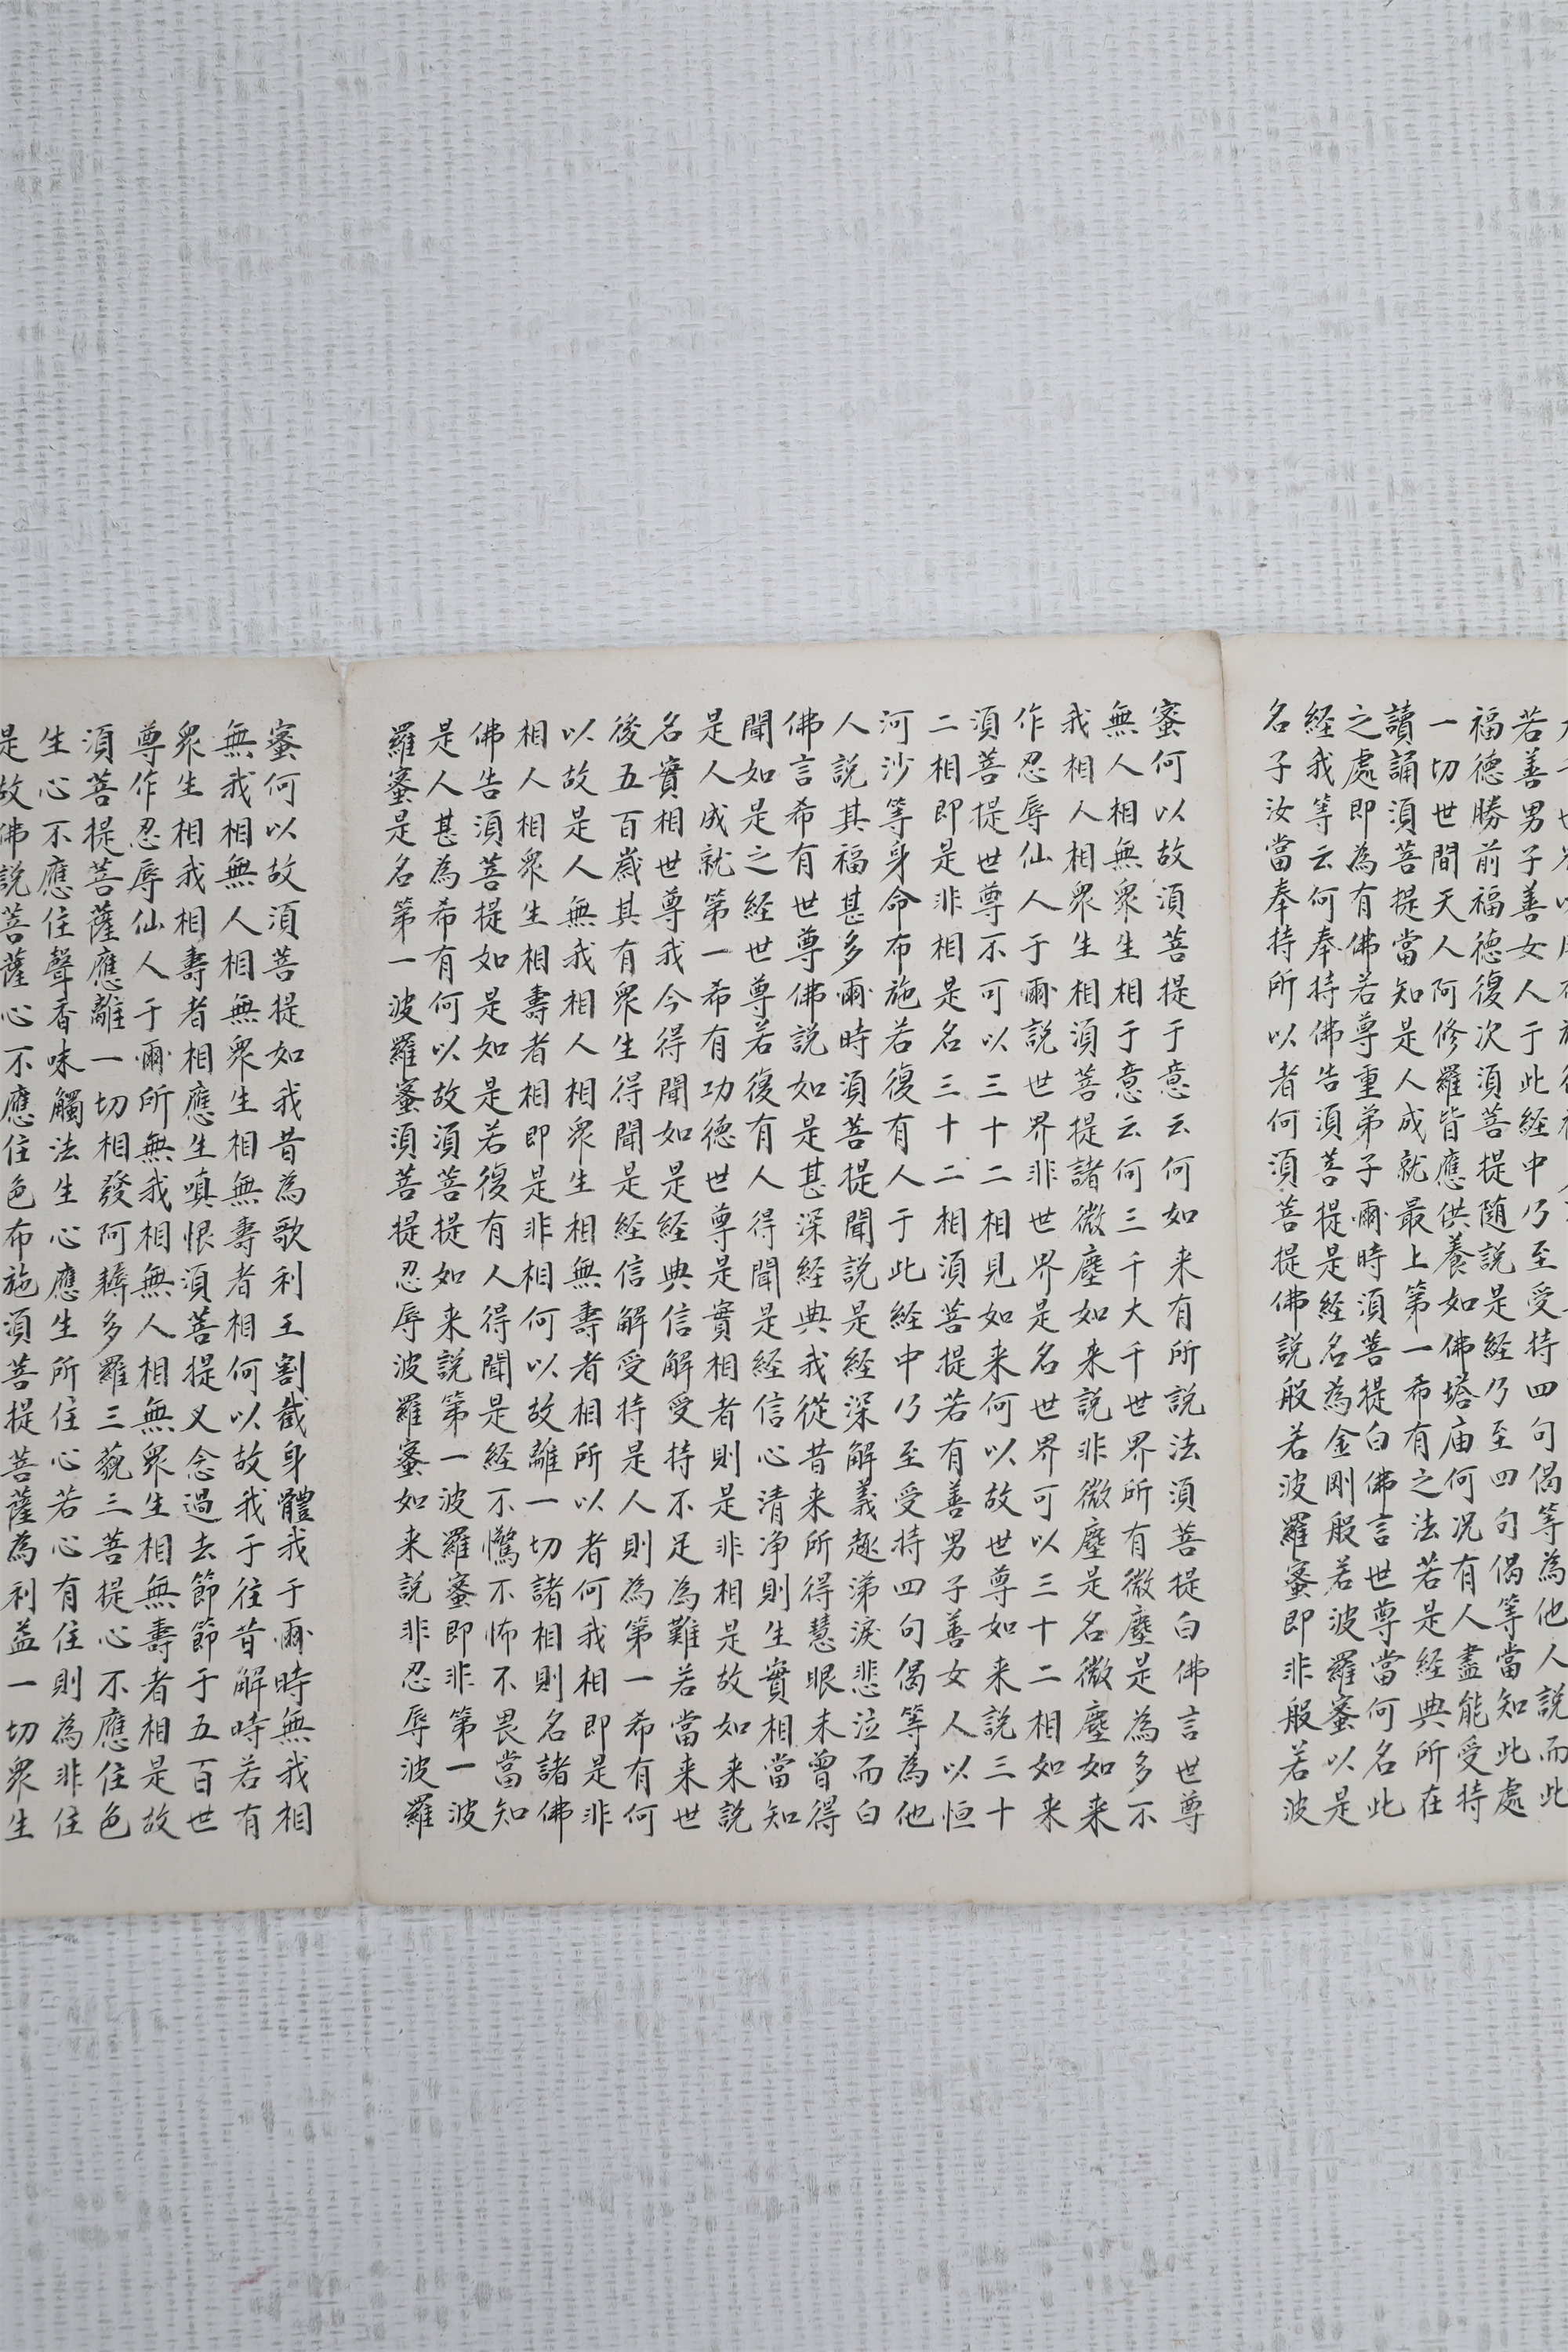 若善男子善女人于此経中乃至受持四句偈等為他人説而此
福德勝前福德復次須菩提隨説是経乃至四句偈等當知此處
一切世間天人阿修羅皆應供養如佛塔庙何况有人盡能受持
讀誦須菩提當知是人成就最上第一希有之法若是経典所在
之處即為有佛若尊重弟子爾時須菩提白佛言世尊當何名此
経我等云何奉持佛告須菩提是経名為金剛般若波羅蜜以是
名子汝當奉持所以者何須菩提佛説般若波羅蜜即非般若波
蜜何以故須菩提于意云何如来有所説法須菩提白佛言世尊
無人相無衆生相于意云何三千大千世界所有微塵是為多不
我相人相衆生相須菩提諸微塵如来説非微塵是名微塵如来
作忍辱仙人于爾説世界非世界是名世界可以三十二相如来
須菩提世尊不可以三十二相見如来何以故世尊如来説三十
二相即是非相是名三十二相須菩提若有善男子善女人以恒
河沙等身命布施若復有人于此経中乃至受持四句偈等為他
人説其福甚多爾時須菩提聞説是経深解義趣涕淚悲泣而白
佛言希有世尊佛説如是甚深経典我從昔来所得慧眼未曾得
聞如是之経世尊若復有人得聞是経信心清净則生實相當知
是人成就第一希有功德世尊是實相者則是非相是故如来説
名實相世尊我今得聞如是経典信解受持不足為難若當来世
後五百歲其有衆生得聞是経信解受持是人則為第一希有何
以故是人無我相人相衆生相無壽者相所以者何我相即是非
相人相衆生相壽者相即是非相何以故離一切諸相則名諸佛
佛告須菩提如是如是若復有人得聞是経不驚不怖不畏當知
是人甚為希有何以故須菩提如来説第一波羅蜜即非第一波
羅蜜是名第一波羅蜜須菩提忍辱波羅蜜如来説非忍辱波羅
蜜何以故須菩提如我昔為歌利王割截身體我于爾時無我相
無我相無人相無衆生相無壽者相何以故我于往昔解時若有
衆生相我相壽者相應生嗔恨須菩提又念過去節節于五百世
尊作忍辱仙人于爾所無我相無人相無衆生相無壽者相是故
須菩提菩薩應離一切相發阿耨多羅三藐三菩提心不應住色
生心不應住聲香味觸法生心應生所住心若心有住則為非住
是故佛説菩薩心不應住色布施須菩提菩薩為利益一切衆生